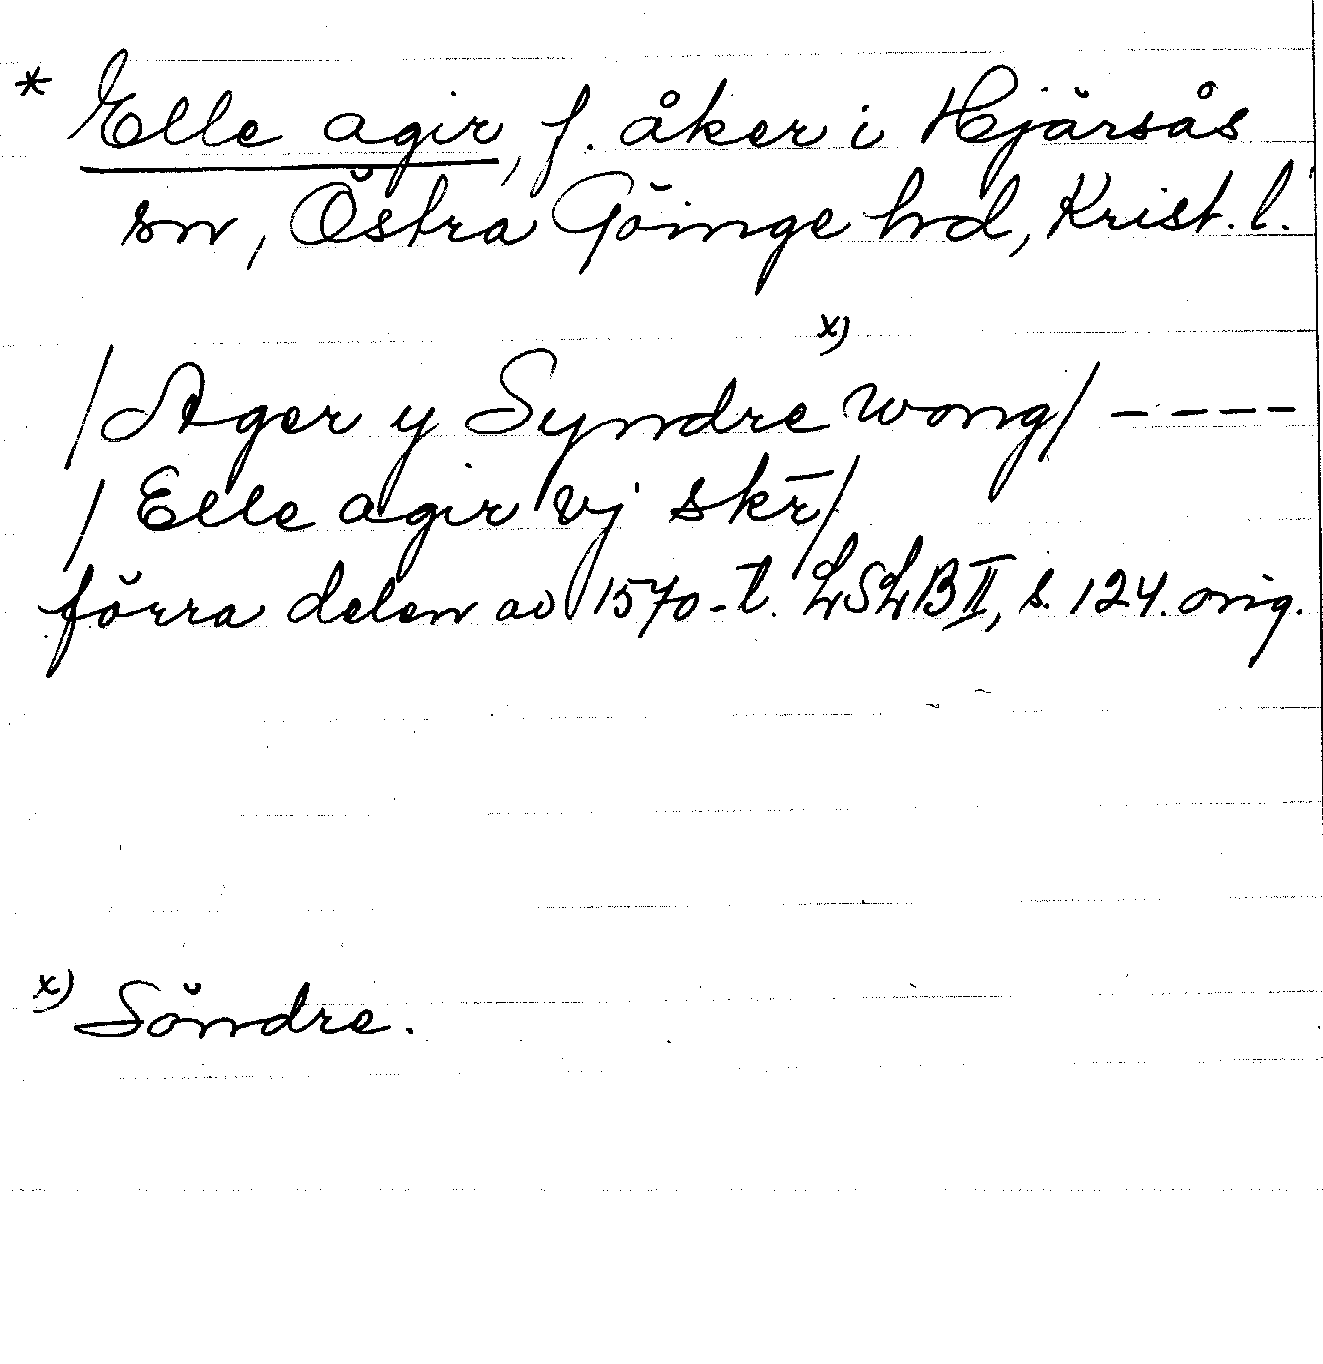 * Elle agir, f. åker i Hjärsås
sn, Östra Göinge hd, Krist. l.
/Ager y Syndre x) wong/ ----
/Elle agir vj skr̄/
förra delen av 1570-t. LSLB II, s. 124. orig.
x) Söndre.